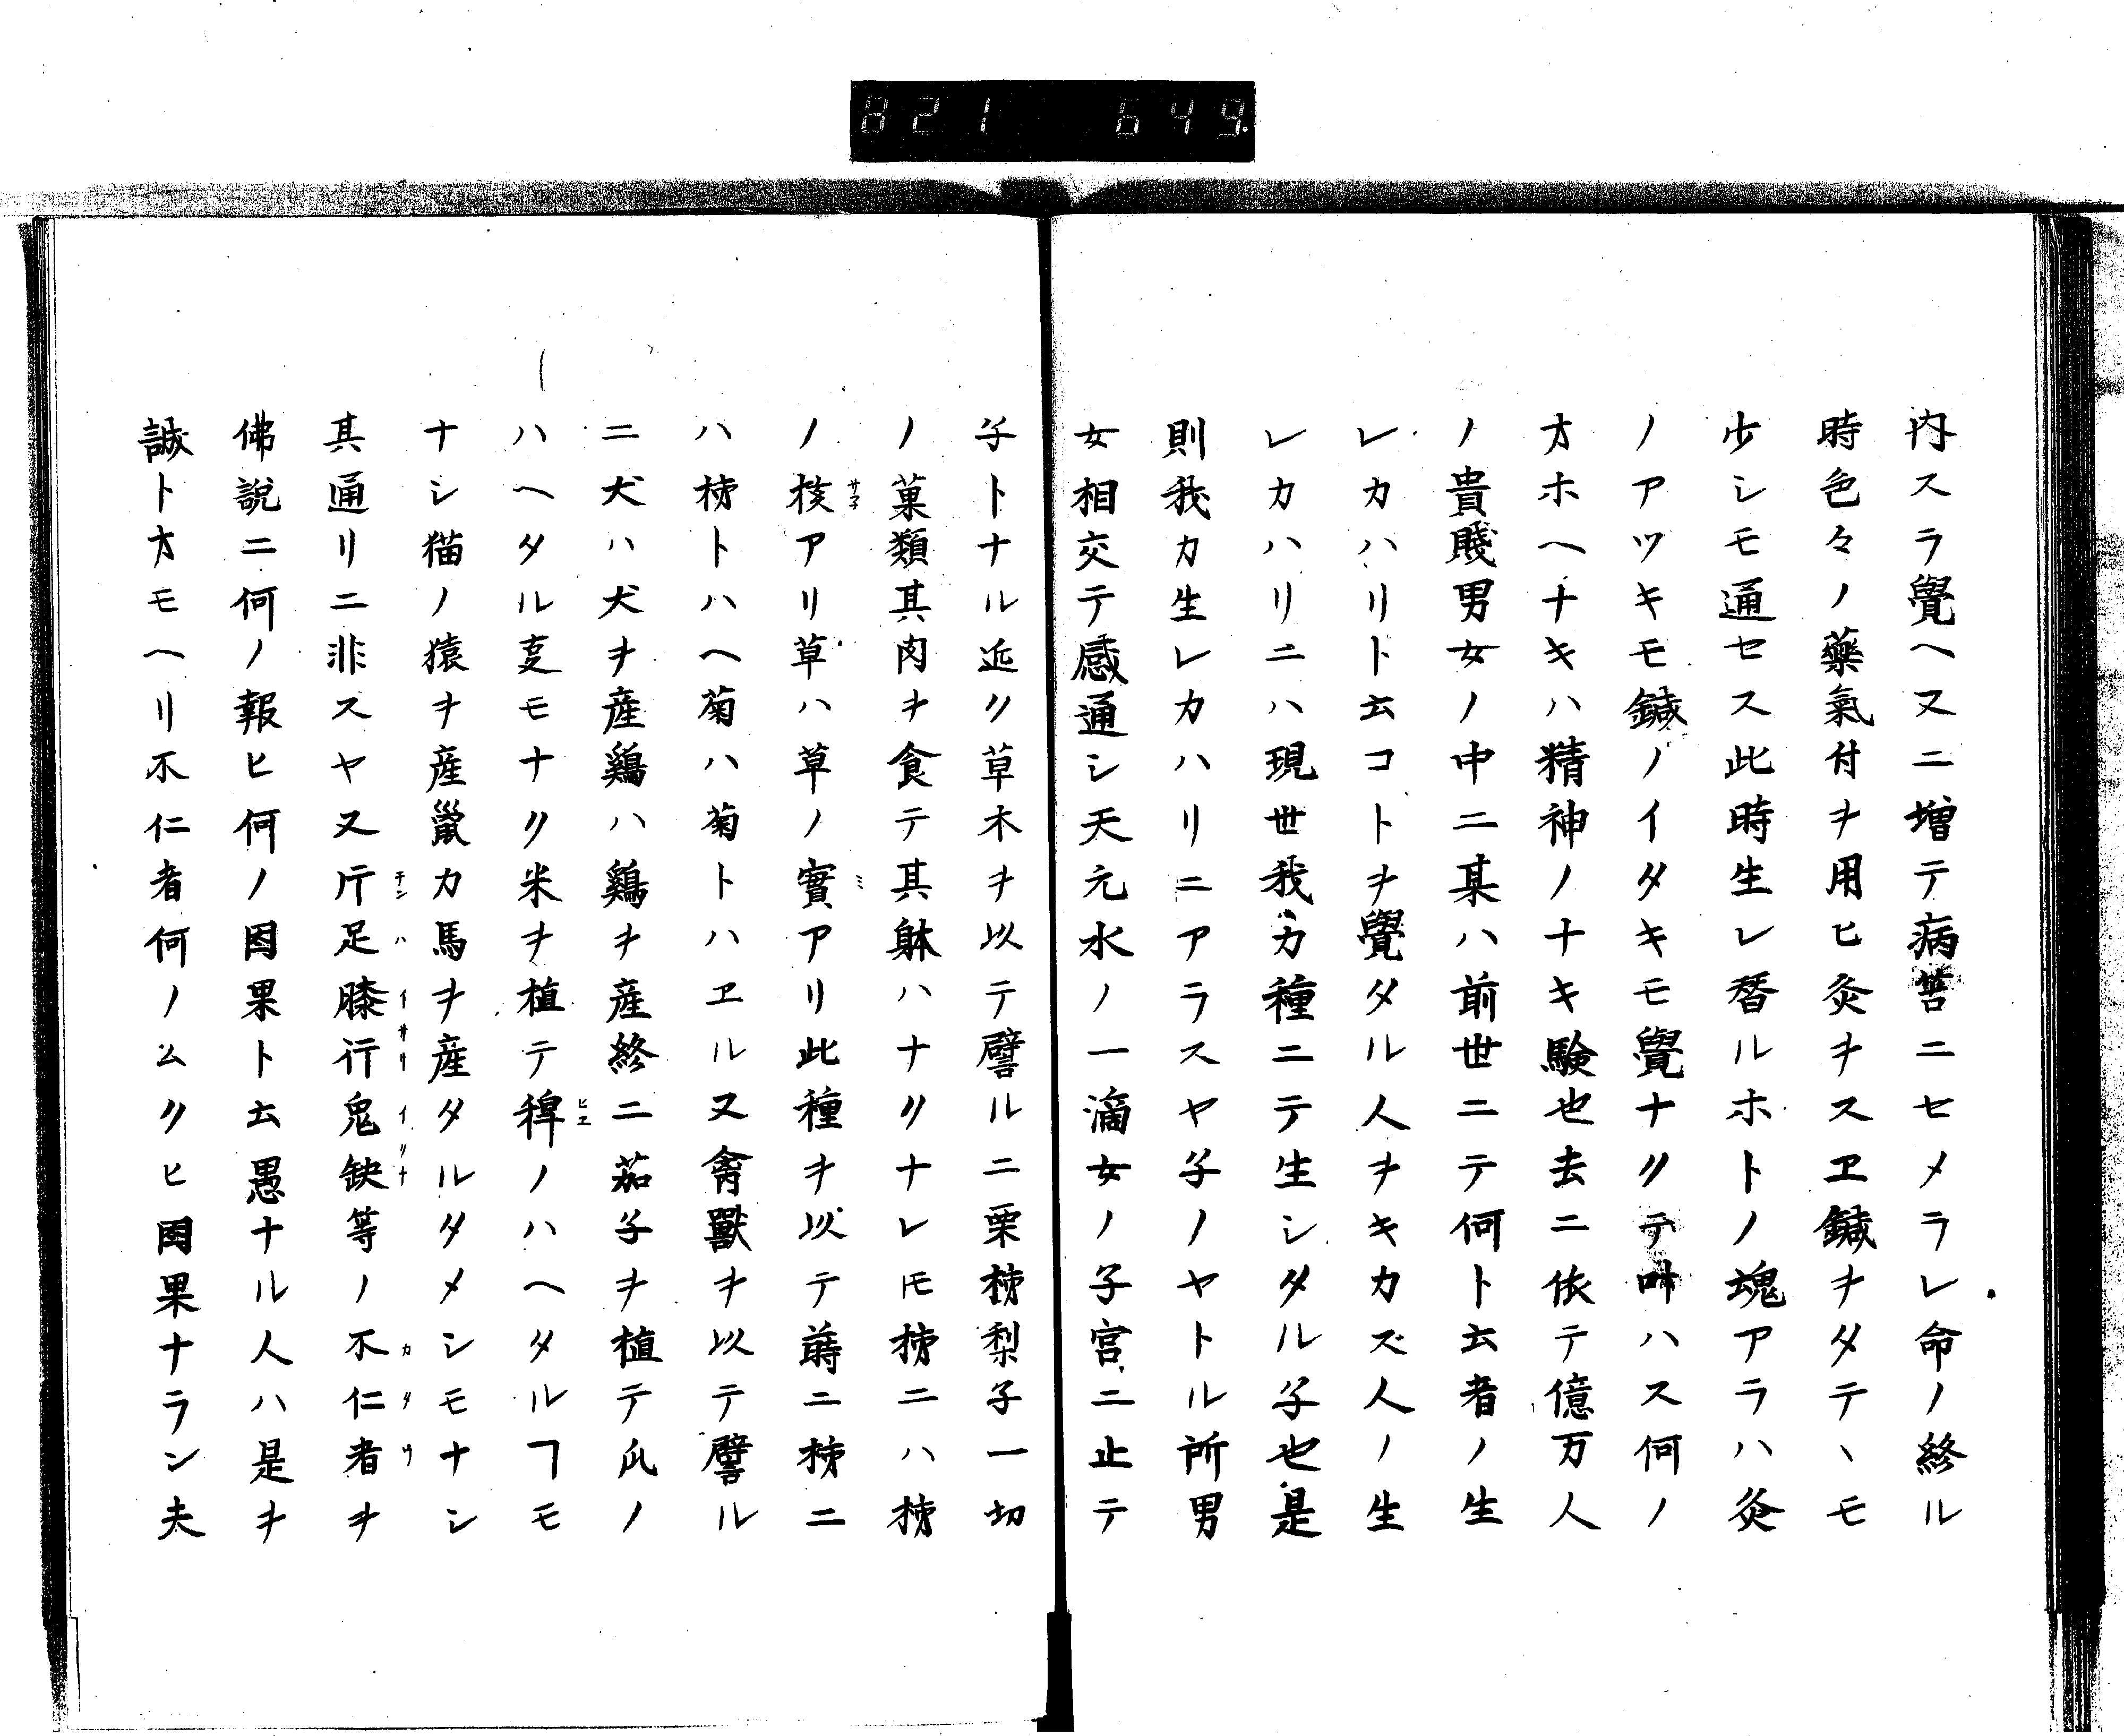 821 649.
内スラ覺ヘヌニ増テ病苦ニセメラレ命ノ終ル
時色々ノ藥氣付ヲ用ヒ灸ヲスヱ鍼ヲタテヽモ
少シモ通セス此時生レ替ルホトノ魂アラハ灸
ノアツキモ鍼ノイタキモ覺ナクテ叶ハス何ノ
オホヘナキハ精神ノナキ験也去ニ依テ億万人
ノ貴賤男女ノ中ニ某ハ前世ニテ何ト云者ノ生
レカハリト云コトヲ覺タル人ヲキカズ人ノ生
レカハリニハ現世我カ種ニテ生シタル子也是
則我カ生レカハリニアラスヤ子ノヤトル所男
女相交テ感通シ天元水ノ一滴女ノ子宮ニ止テ
子トナル近ク草木ヲ以テ譬ルニ栗柿梨子一切
ノ菓類其肉ヲ食テ其躰ハナクナレ𪜈柿ニハ柿
ノ核サ子アリ草ハ草ノ實ミアリ此種ヲ以テ蒔ニ柿ニ
ハ柿トハヘ菊ハ菊トハヱル又禽獸ヲ以テ譬ル
ニ犬ハ犬ヲ産鷄ハ鷄ヲ産終ニ茄子ヲ植テ瓜ノ
ハヘタル叓モナク米ヲ植テ稗ヒヱノハヘタルヿモ
ナシ猫ノ猿ヲ産鼠カ馬ヲ産タルタメシモナシ
其通リニ非スヤ又片足チンハ膝行イサリ鬼缺イクチ等ノ不仁者カタワヲ
佛說ニ何ノ報ヒ何ノ因果ト云愚ナル人ハ是ヲ
誠トオモヘリ不仁者何ノムクヒ因果ナラン夫